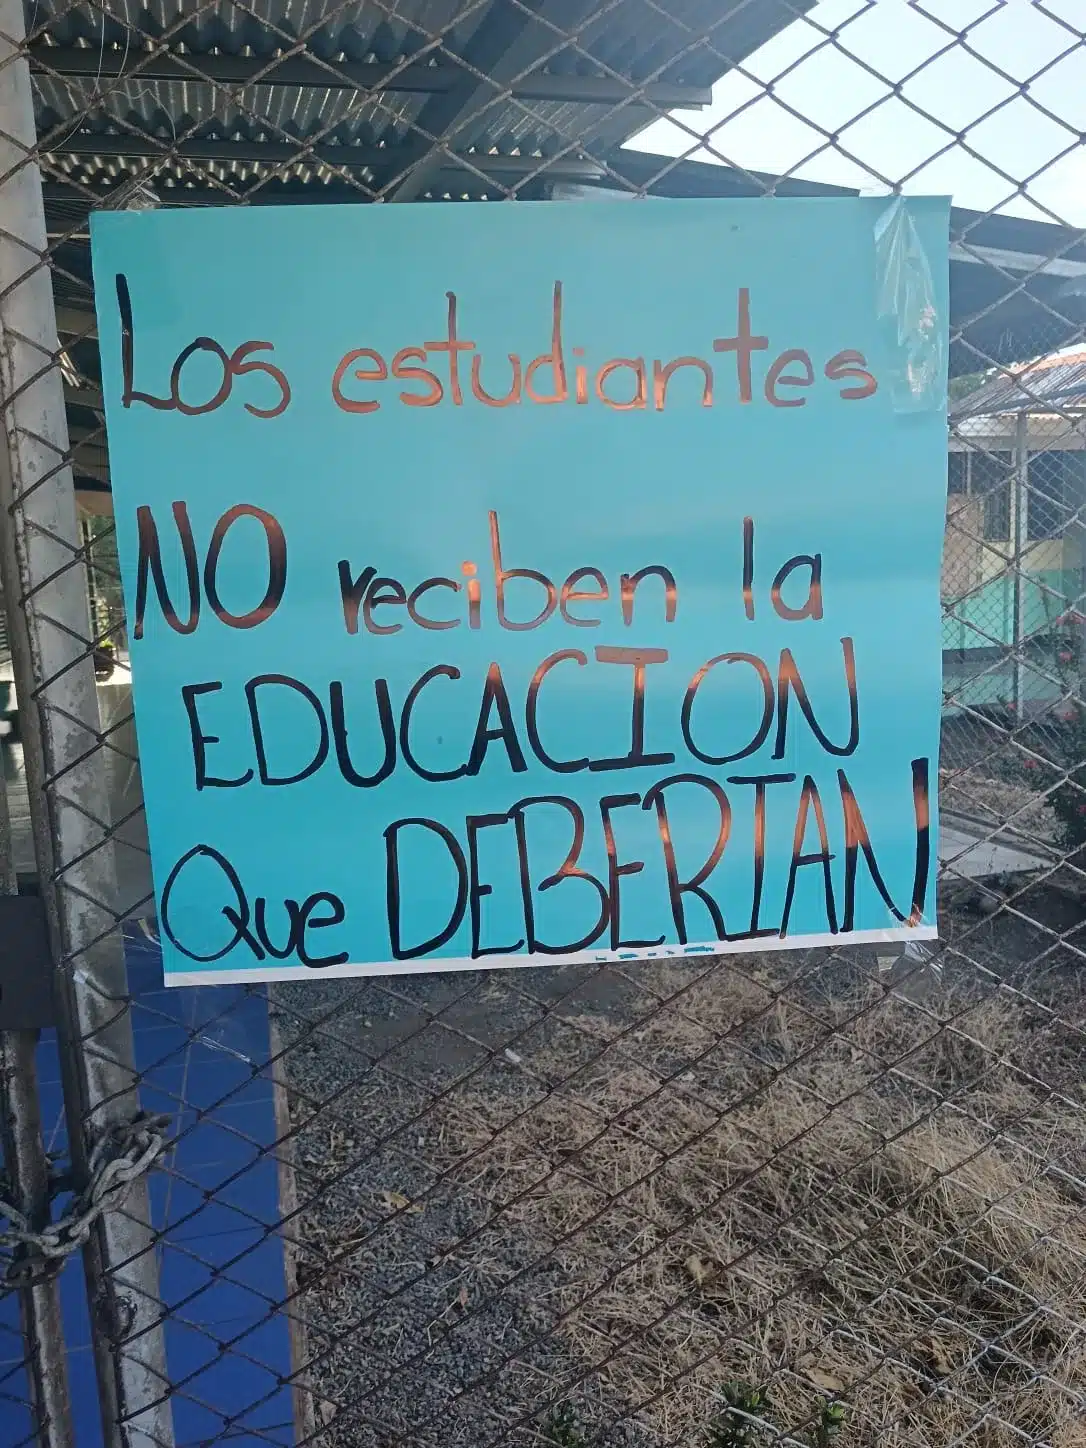 Los estudiantes
NO reciben la
EDUCACION
Que DEBERIAN